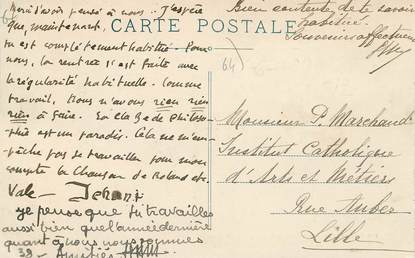 Merci d'avoir pensé à nous. J'espère
que, maintenant,
tu est complètement habitué. Pour
nous, la rentrée s'est faite avec
la régularité habituelle. Comme
travail, nous n'avons rien rien
rien à faire. La classe de philoso-
phie est un paradis. Cela ne m'em-
pêche pas de travailler pour mon
compte la Chanson de Roland etc.
Vale — Jehan
je pense que tu travailles
aussi bien que l'année dernière
quant à nous nous sommes
39 - Amitiés
CARTE POSTALE
Bien contente de te savoir
habitué.
Souvenir affectueux
64
Monsieur P. Marchand
Institut Catholique
d'Arts et Métiers
Rue Auber
Lille